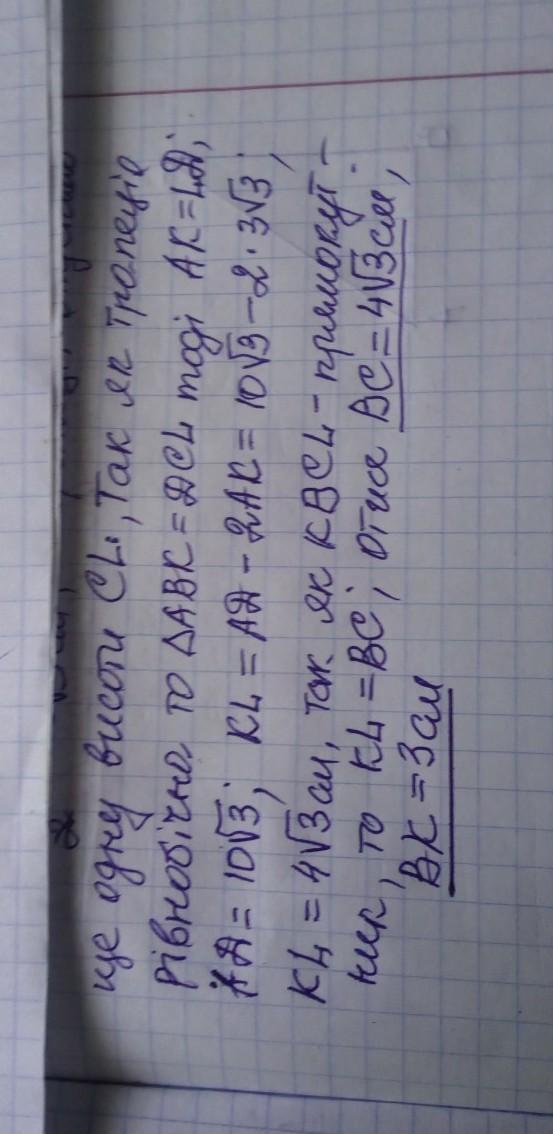 ще одну висоти CL, Так як трапеція
рівнобічна то ΔABK = DCL тоді AK = LД;
AД = 10√3; KL = AД - 2AK = 10√3 - 2·3√3;
KL = 4√3 см, так як KBCL - прямокут-
ник, то KL = BC; отже BC = 4√3 см,
BK = 3 см